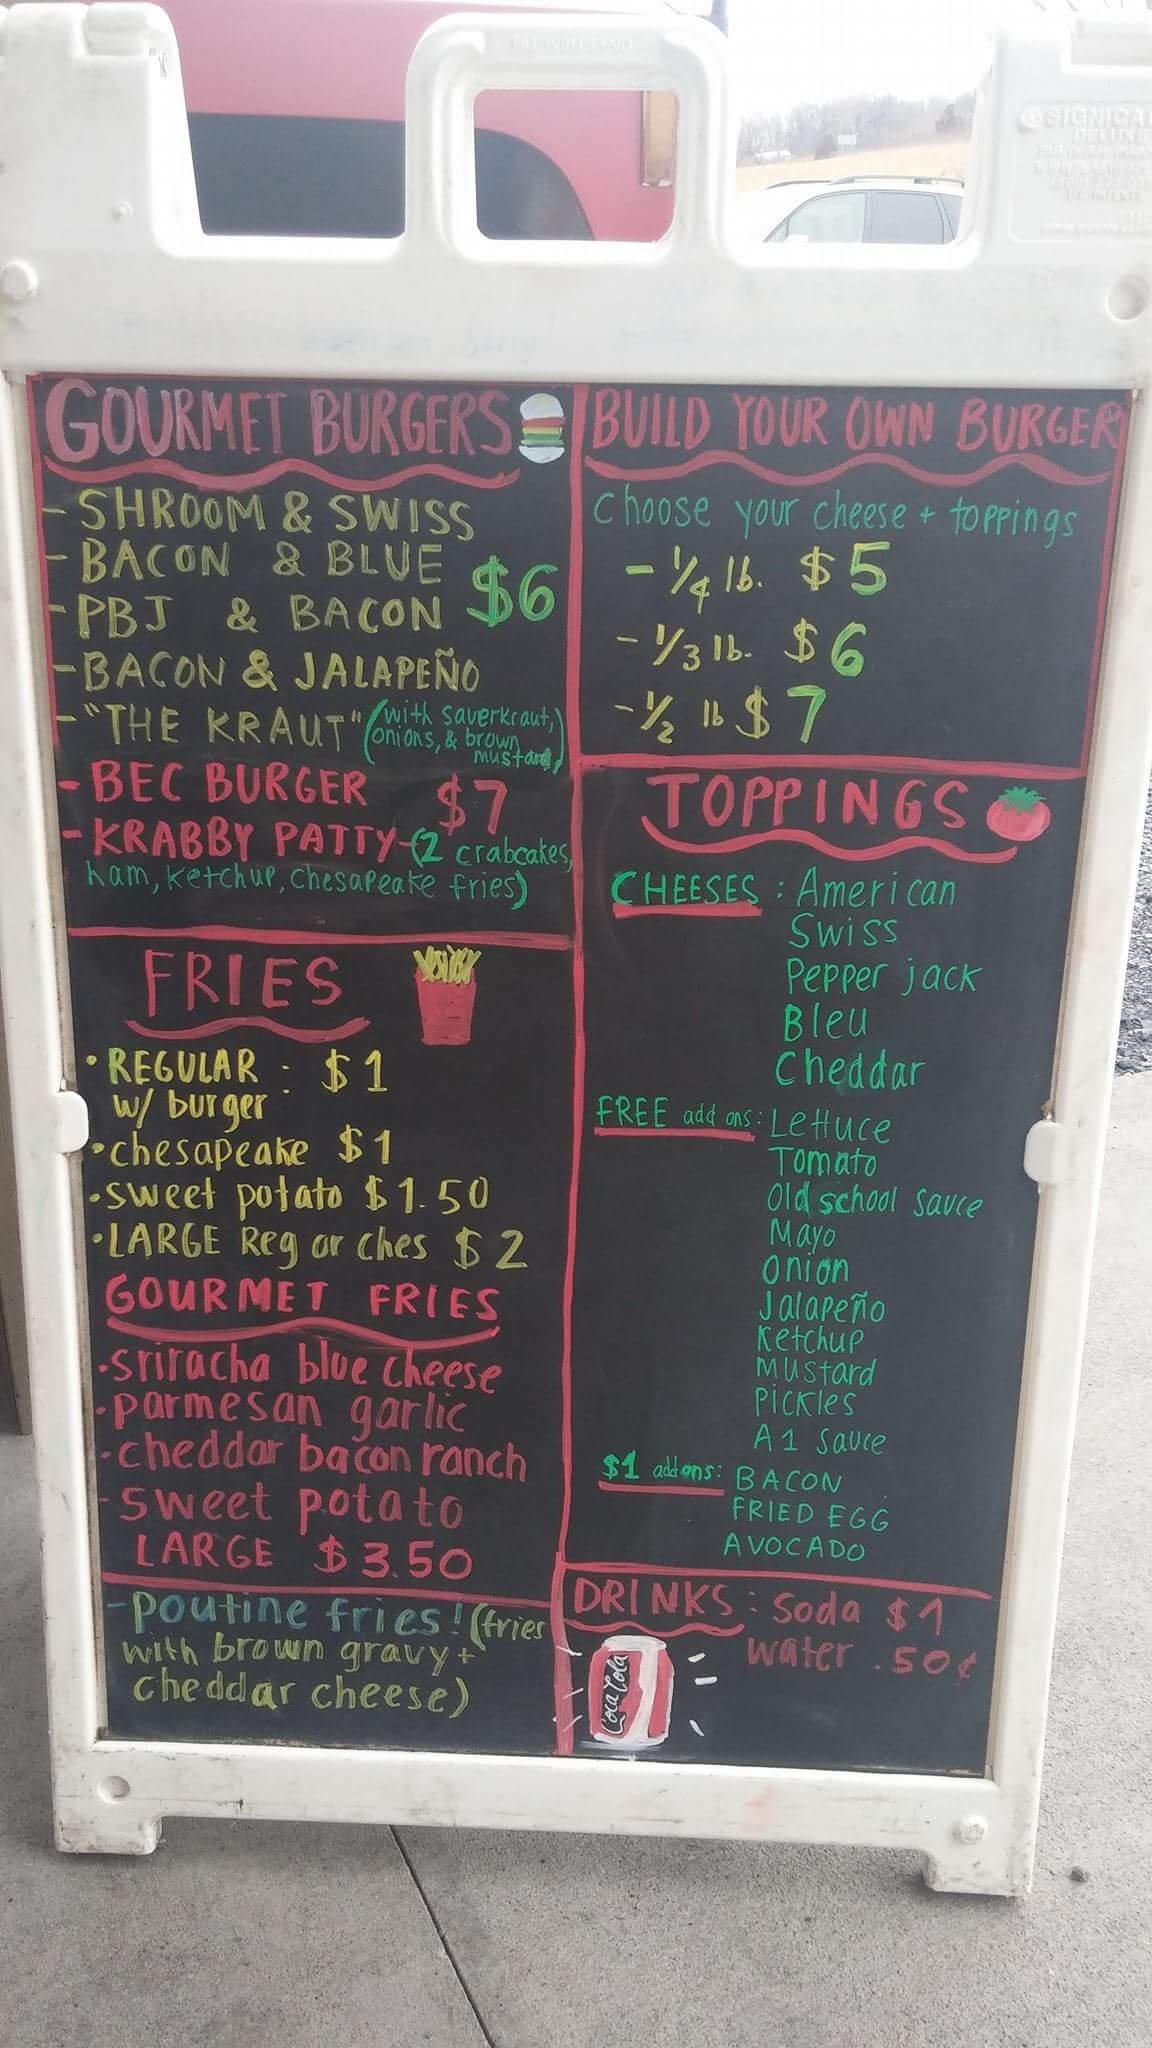 GOURMET BURGERS
- SHROOM & SWISS
- BACON & BLUE
$6
- PBJ & BACON
- BACON & JALAPEÑO
- "THE KRAUT" (with saverkraut,
onions, & brown
mustard)
- BEC BURGER $7
- KRABBY PATTY - (2 crabcakes,
ham, ketchup, chesapeake fries)
FRIES
• REGULAR : $1
w/ burger
• chesapeake $1
• sweet potato $1.50
• LARGE Reg or ches $2
GOURMET FRIES
• sriracha blue cheese
• parmesan garlic
• cheddar bacon ranch
- sweet potato
LARGE $3.50
- poutine fries! (fries
with brown gravy +
cheddar cheese)
BUILD YOUR OWN BURGER
choose your cheese + toppings
- 1/4 lb. $5
- 1/3 lb. $6
- 1/2 lb $7
TOPPINGS
CHEESES : American
Swiss
Pepper jack
Bleu
Cheddar
FREE add ons: Lettuce
Tomato
Old school sauce
Mayo
onion
Jalapeño
Ketchup
Mustard
pickles
A1 sauce
$1 add ons: BACON
FRIED EGG
AVOCADO
DRINKS : Soda $1
water .50¢
Coca Cola
SIGNICA
DELUXE